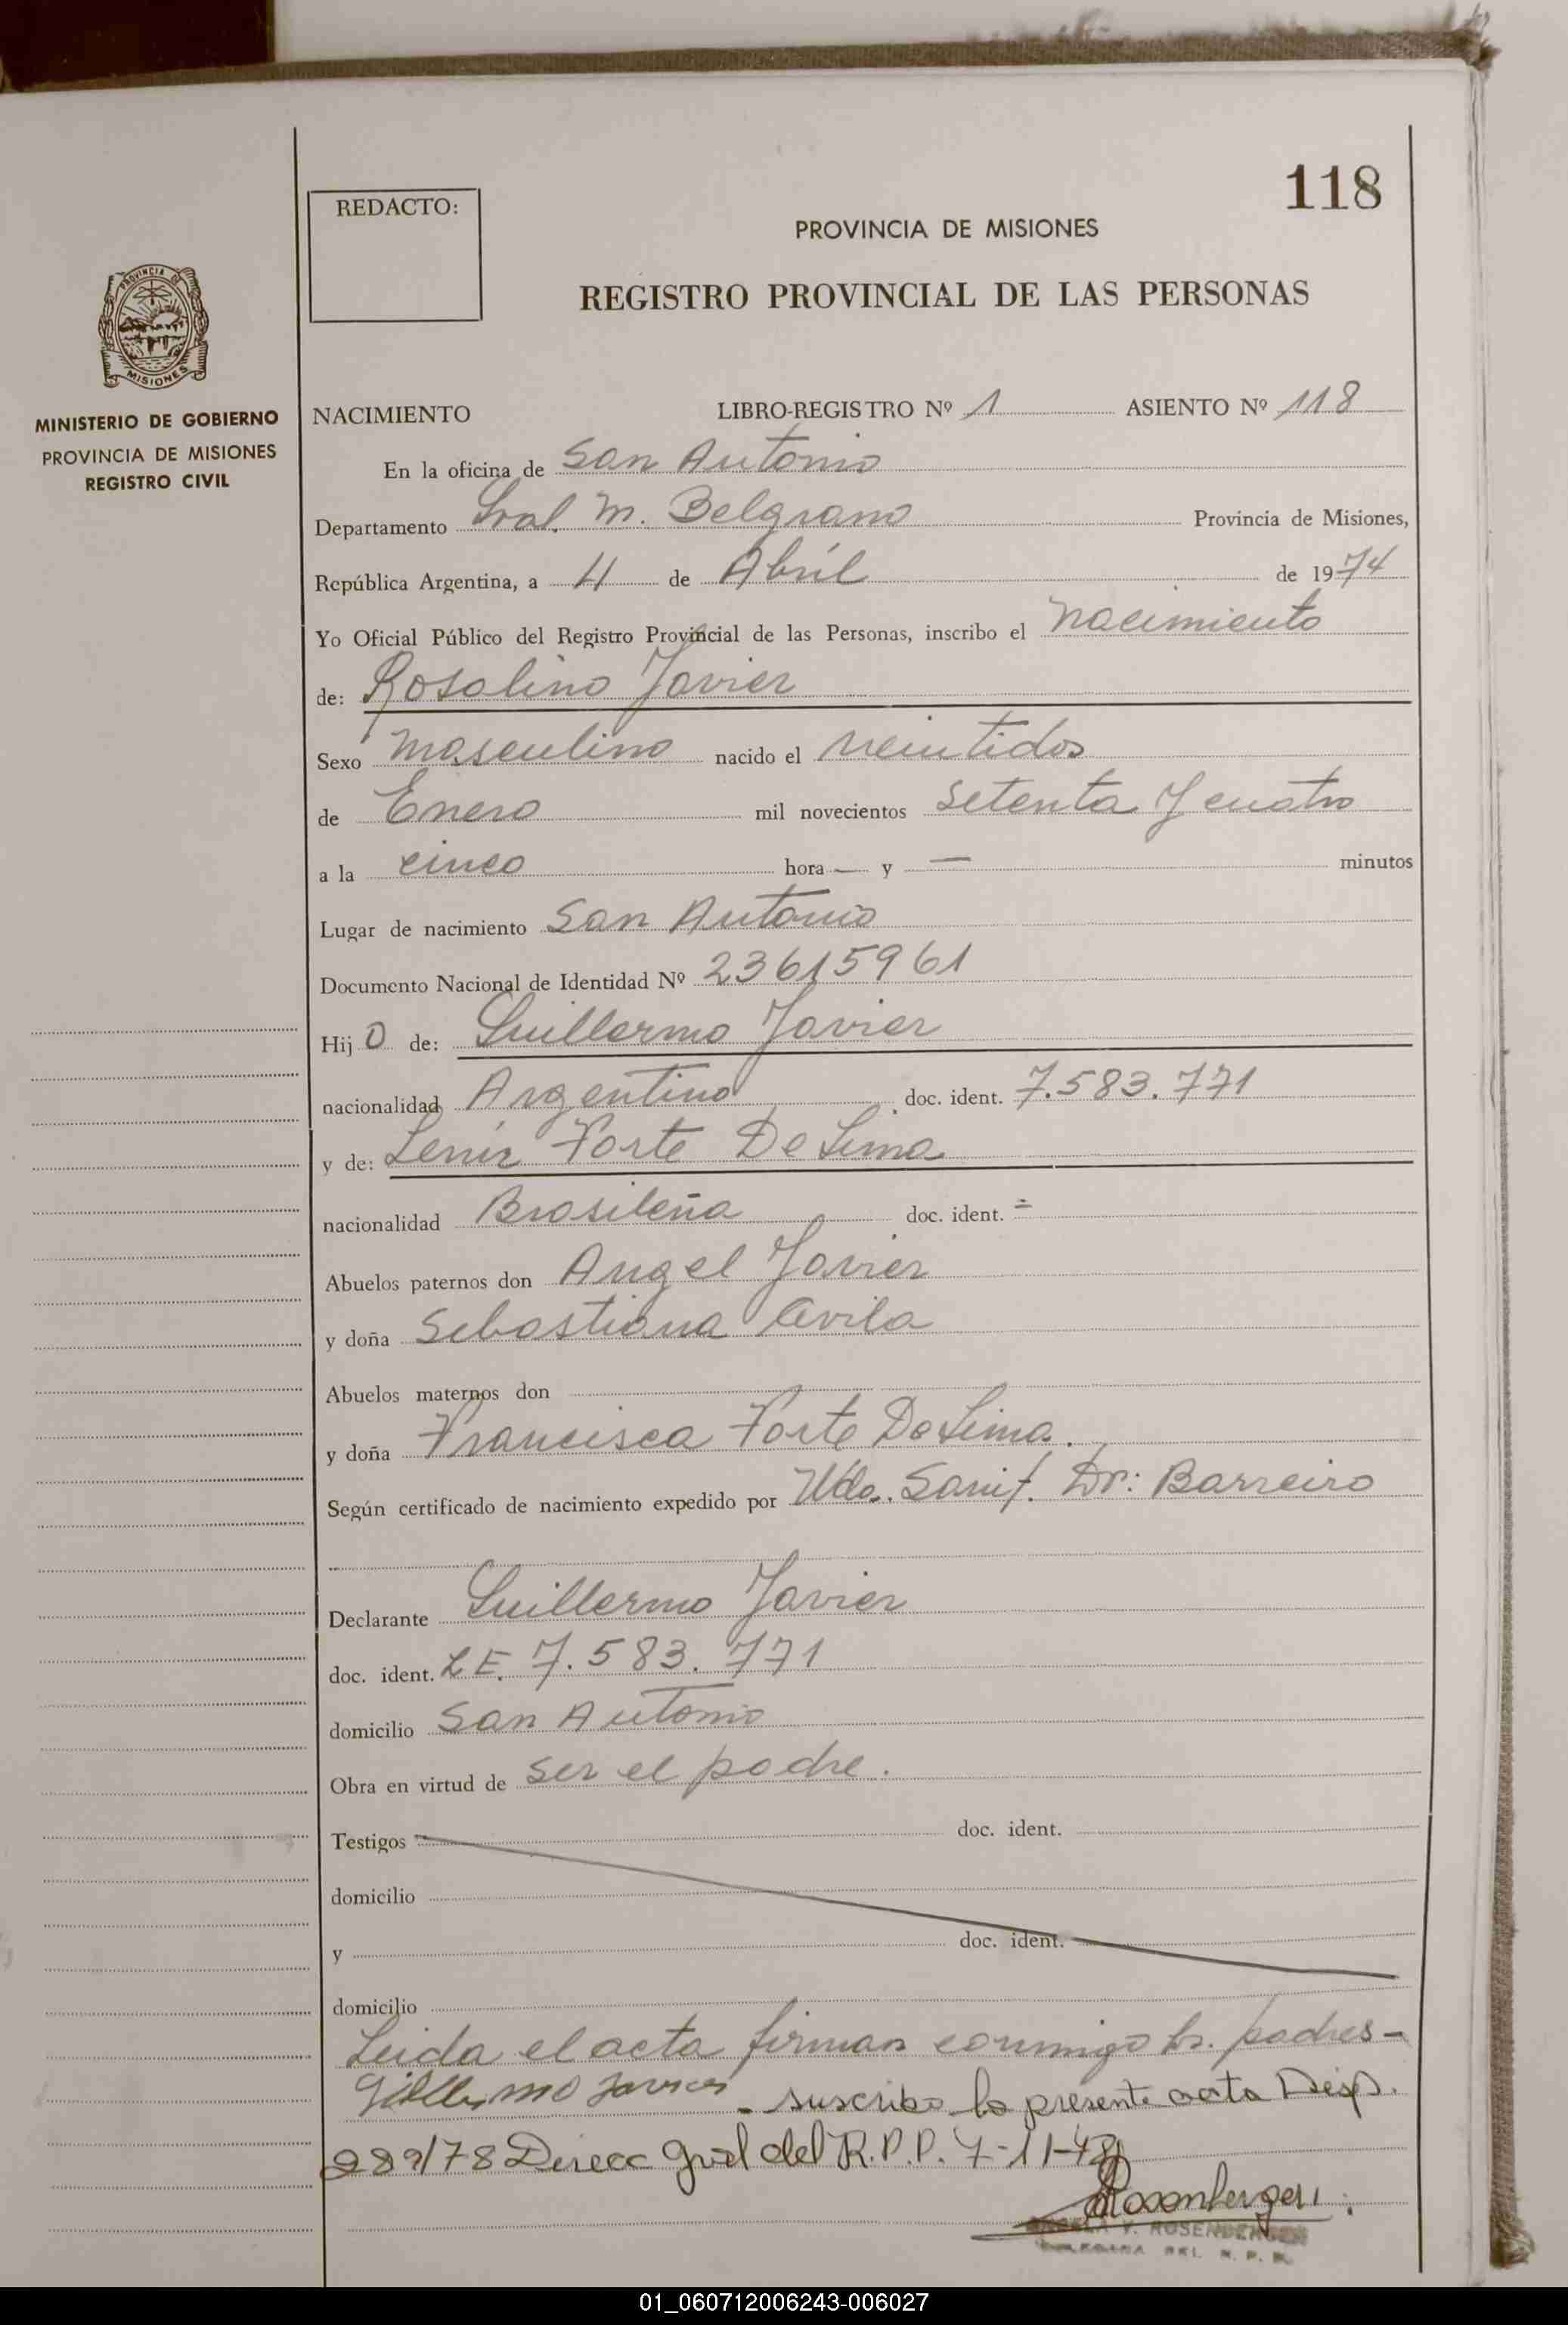 118
REDACTO:
PROVINCIA DE MISIONES
REGISTRO PROVINCIAL DE LAS PERSONAS
PROVINCIA DE
MISIONES
MINISTERIO DE GOBIERNO
PROVINCIA DE MISIONES
REGISTRO CIVIL
NACIMIENTO LIBRO-REGISTRO Nº 1 ASIENTO Nº 118
En la oficina de San Antonio
Departamento Gral. M. Belgrano Provincia de Misiones,
República Argentina, a 4 de Abril de 1974
Yo Oficial Público del Registro Provincial de las Personas, inscribo el nacimiento
de: Rosalino Javier
Sexo masculino nacido el veintidos
de Enero mil novecientos setenta y cuatro
a la cinco hora — y — minutos
Lugar de nacimiento San Antonio
Documento Nacional de Identidad Nº 23615961
Hijo de: Guillermo Javier
nacionalidad Argentino doc. ident. 7.583.771
y de: Lenir Forte De Lima
nacionalidad Brasileña doc. ident. =
Abuelos paternos don Angel Javier
y doña Sebastiana Avila
Abuelos maternos don
y doña Francisca Forte De Lima.
Según certificado de nacimiento expedido por Uda. Sanit. Dr: Barreiro
Declarante Guillermo Javier
doc. ident. L.E. 7.583.771
domicilio San Antonio
Obra en virtud de ser el padre.
Testigos doc. ident.
domicilio
y doc. ident.
domicilio
Leida el acta firman conmigo los padres-
Gillermo Javier - suscribo la presente acta Disp.
289/78 Direcc Gral del R.P.P. 7-11-78
Rosenberger
V. ROSENBERGER
DELEGADA DEL R. P. P.
01_060712006243-006027